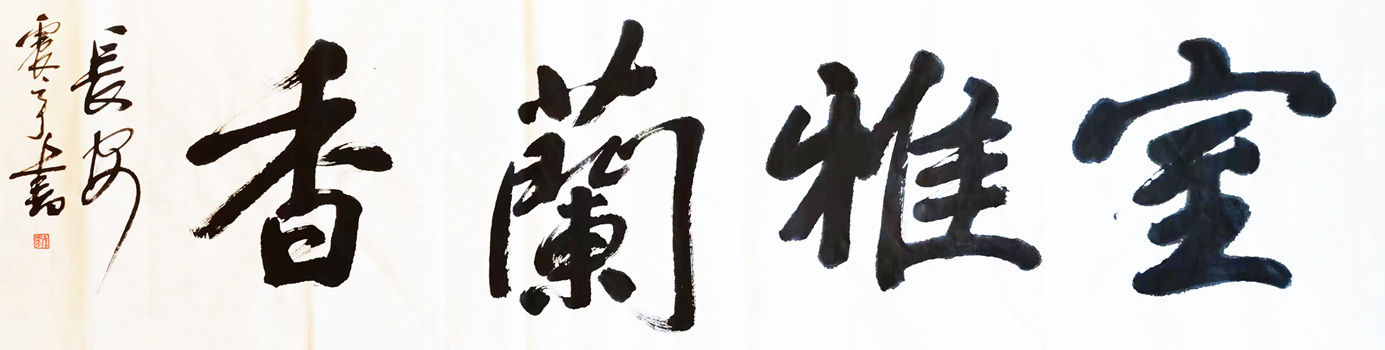 室雅蘭香
長安
震亭書